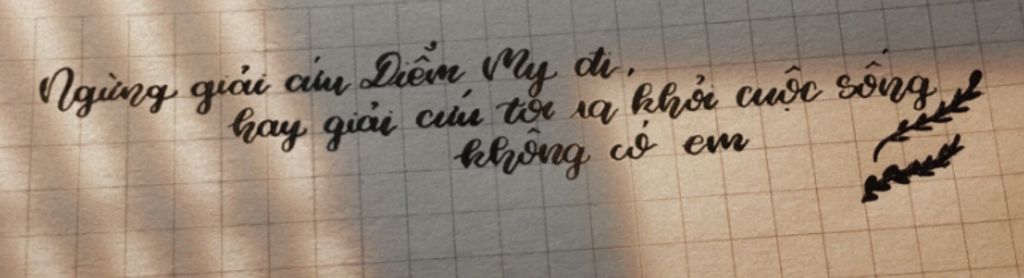 Ngừng giải cứu Diễm My đi,
hãy giải cứu tôi ra khỏi cuộc sống
không có em